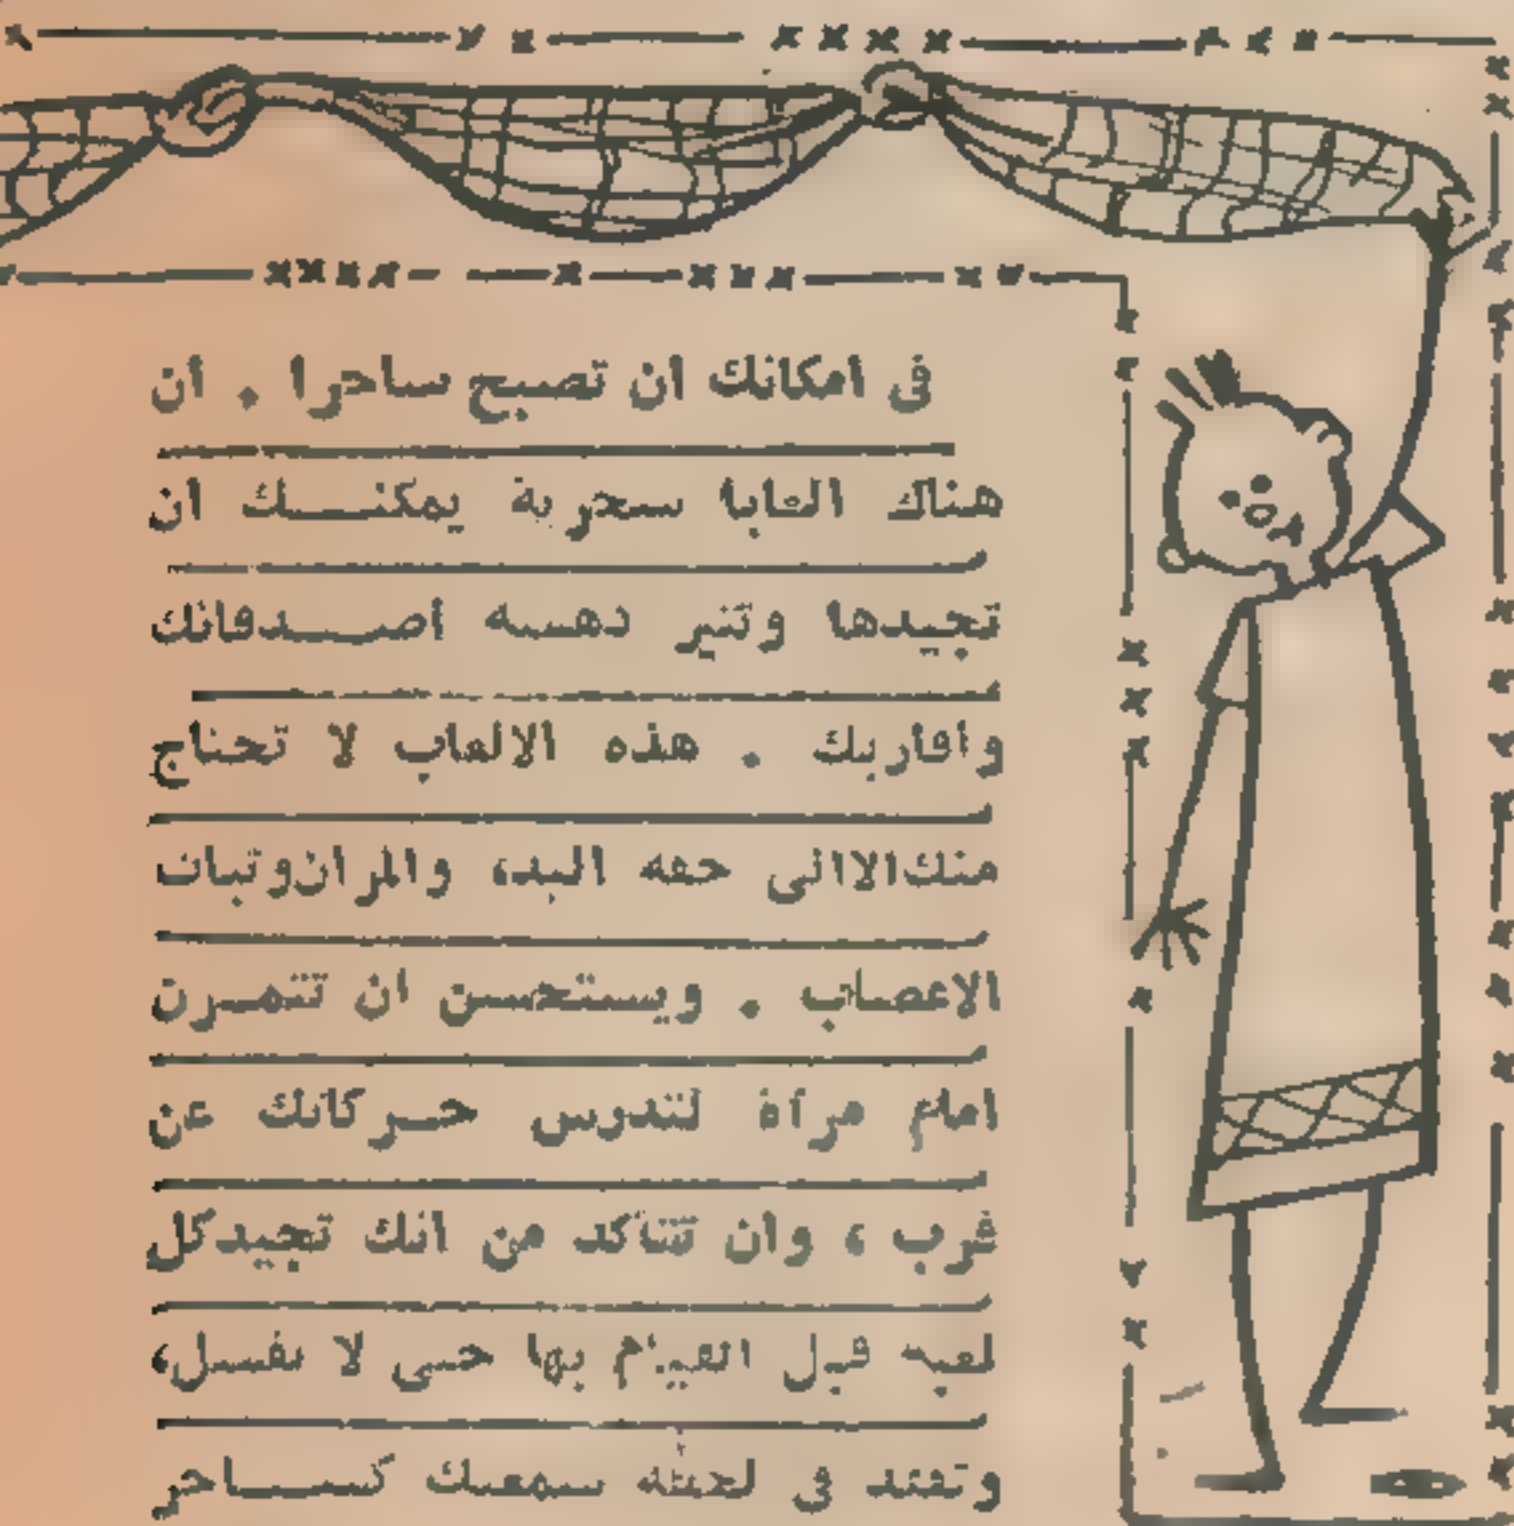 فى امكانك ان تصبح ساحرا . ان
هناك العابا سحرية يمكنــك ان
تجيدها وتثير دهشة أصــدقائك
وأقاربك . هذه الالعاب لا تحتاج
منك الا الى خفة اليد، والمران وثبات
الاعصاب . ويستحسن ان تتمـرن
امام مرآة لتدرس حـركاتك عن
قرب ، وان تتأكد من انك تجيد كل
لعبة قبل القيام بها حتى لا تفشل،
وتفقد فى لحظة سمعتك كســاحر